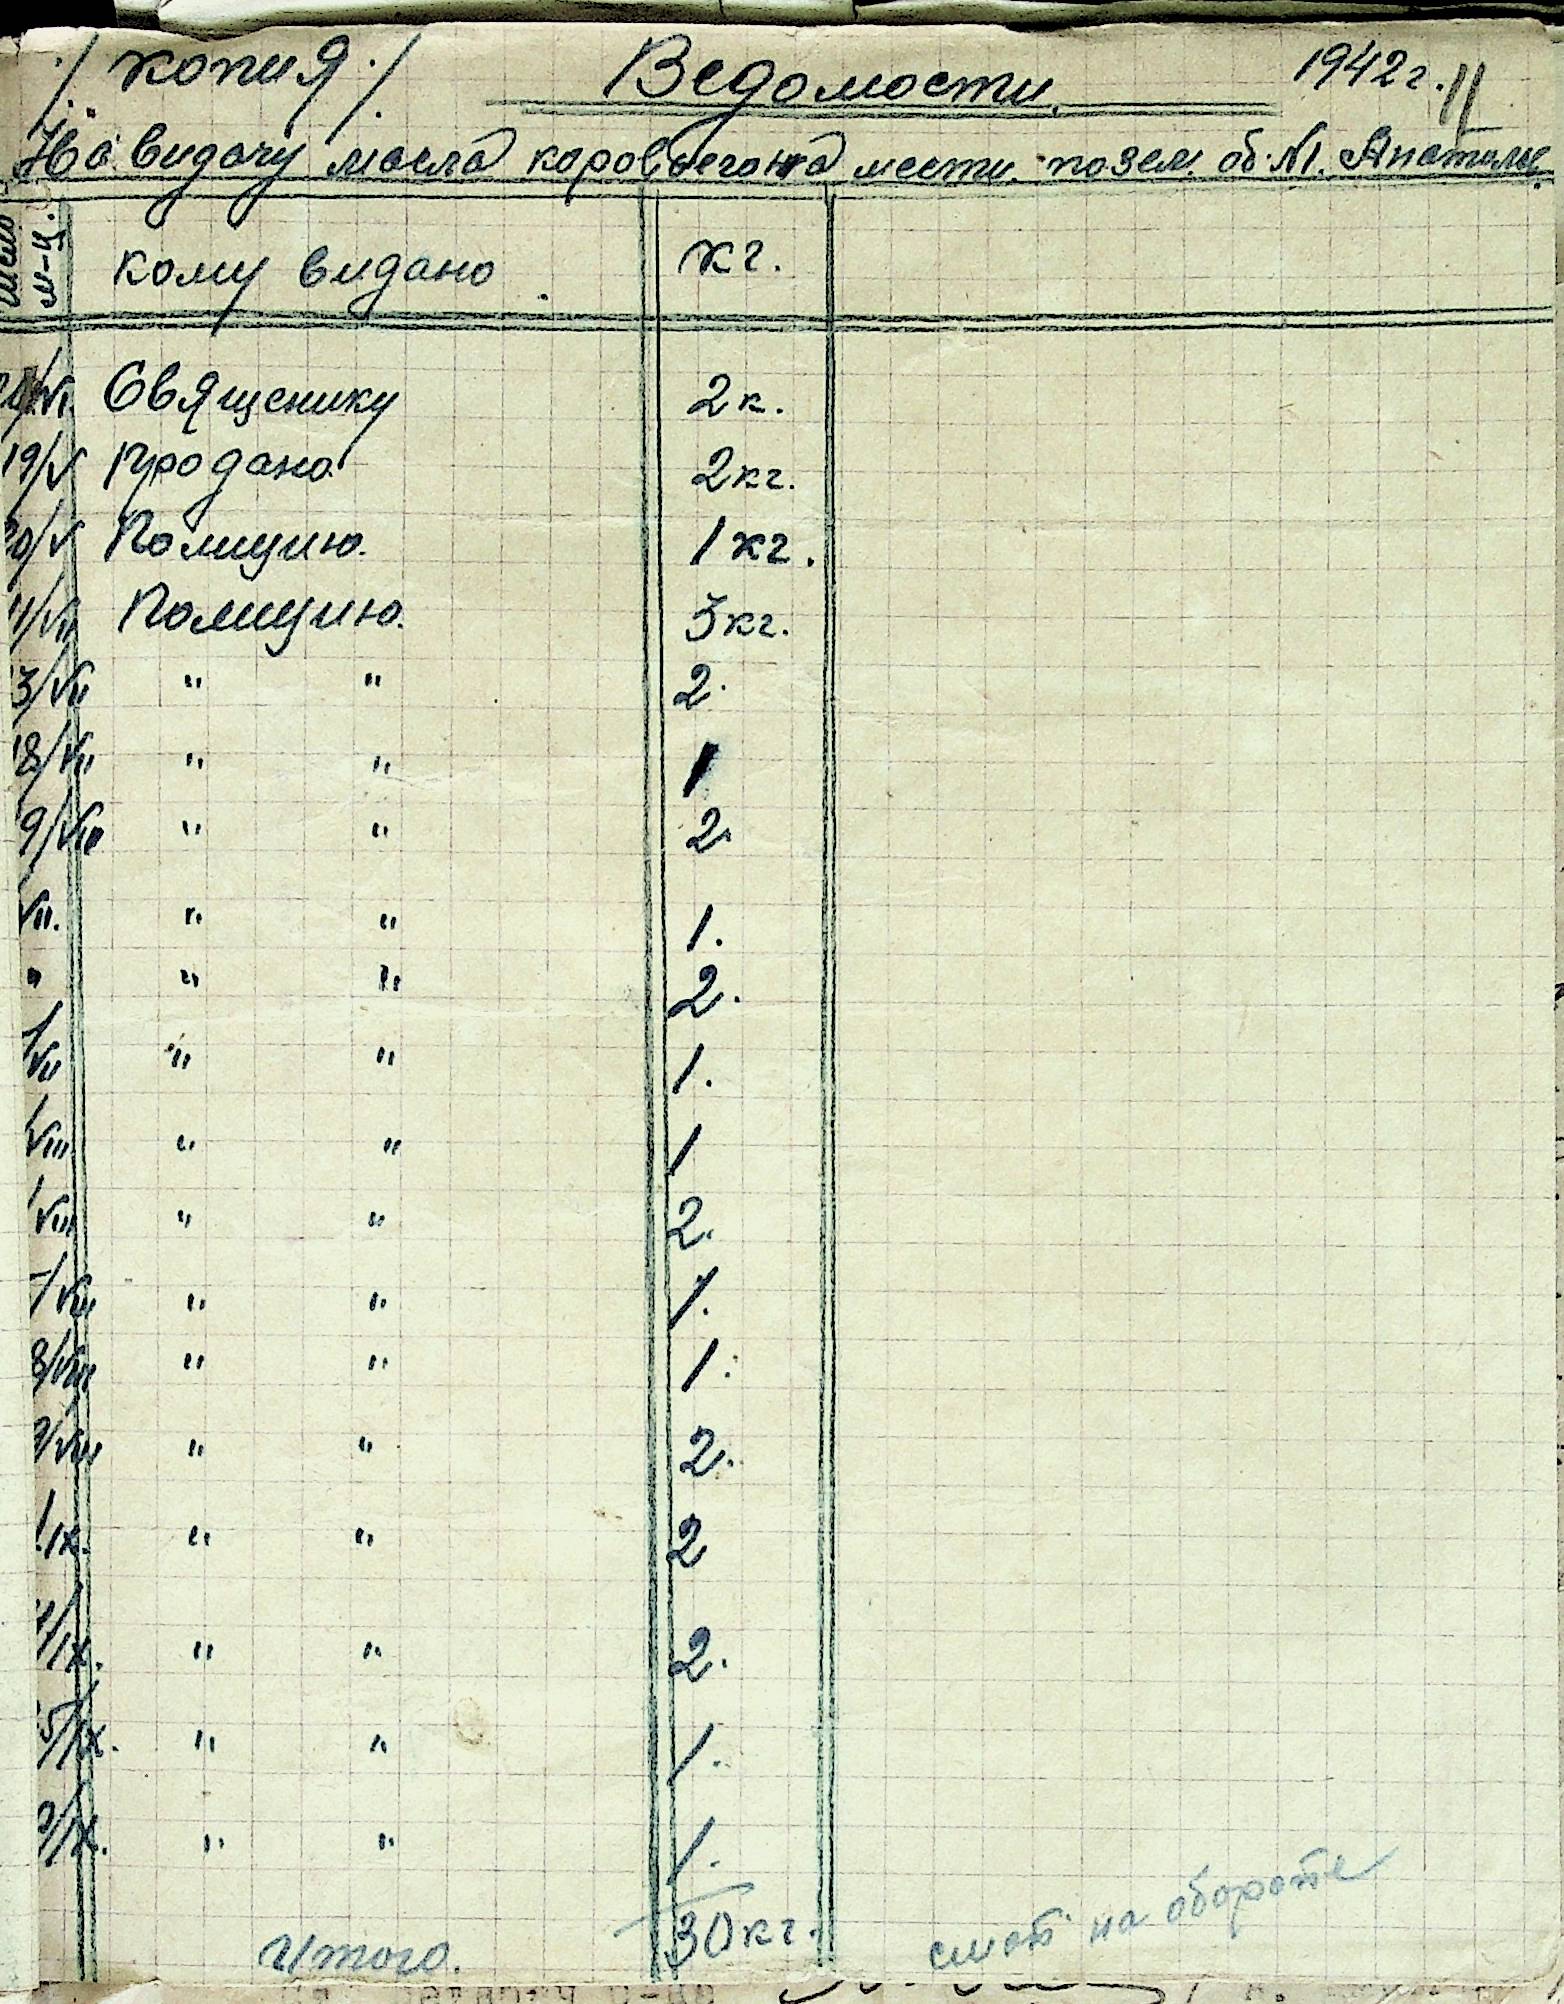 /копия/ Ведомости 1942г. 11
На видачу масла коровьего на мести. позем. об. №1. Анатолье.
число м-ц. кому видано кг.
Священику 2к.
19/V Продано. 2кг.
20/V Полицию. 1кг.
11/VII Полицию. 3кг.
13/VII " " 2.
18/VII " " 1
9/VIII " " 2.
VII. " " 1.
" " " 2.
/VII " " 1.
/VIII " " 1
/VIII " " 2.
7/VIII " " 1.
8/VIII " " 1.
9/VIII " " 2.
/IX. " " 2
/IX. " " 2.
5/IX. " " 1.
/IX. " " 1.
Итого. 30кг.
смот на обороте